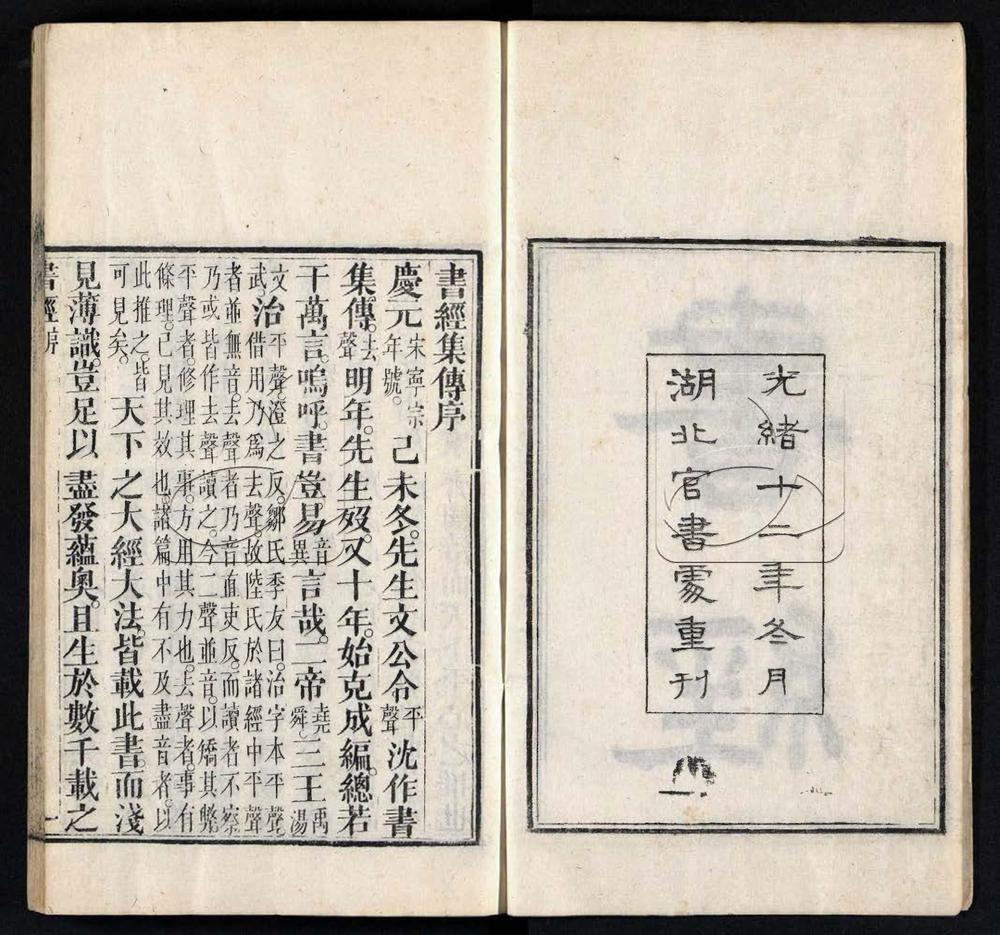 光緒十二年冬月
湖北官書處重刊
書經集傳序
慶元宋寧宗年號。己未冬。先生文公令平聲沈作書
集傳。去聲明年。先生歿。又十年。始克成編。總若
干萬言。嗚呼。書豈易音異言哉。二帝堯舜。三王禹湯
文武。治平聲。澄之反。鄒氏季友曰。治字本平聲。借用乃爲去聲。故陸氏於諸經中平聲
者並無音。去聲者乃音直吏反。而讀者不察。乃或皆作去聲讀之。今二聲並音。以矯其弊。
平聲者。修理其事。方用其力也。去聲者。事有條理。已見其效也。諸篇中有不及盡音者。以
此推之。皆可見矣。天下之大經大法。皆載此書。而淺
見薄識。豈足以盡發蘊奧。且生於數千載之
書經 序 一